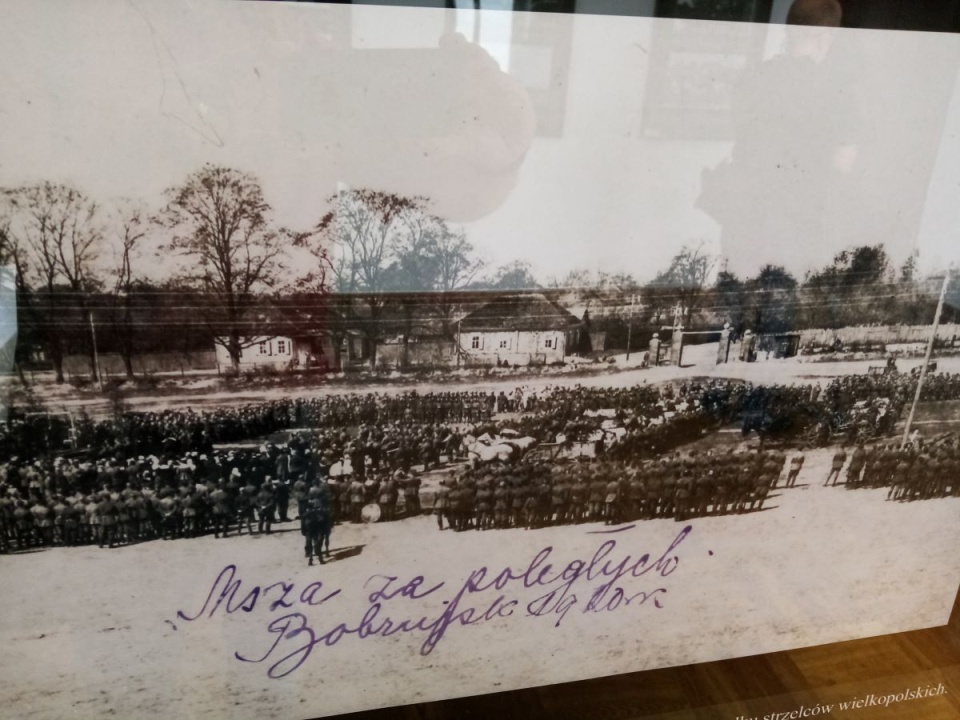 Msza za poległych.
Bobrujsk 1920rk
strzelców wielkopolskich.